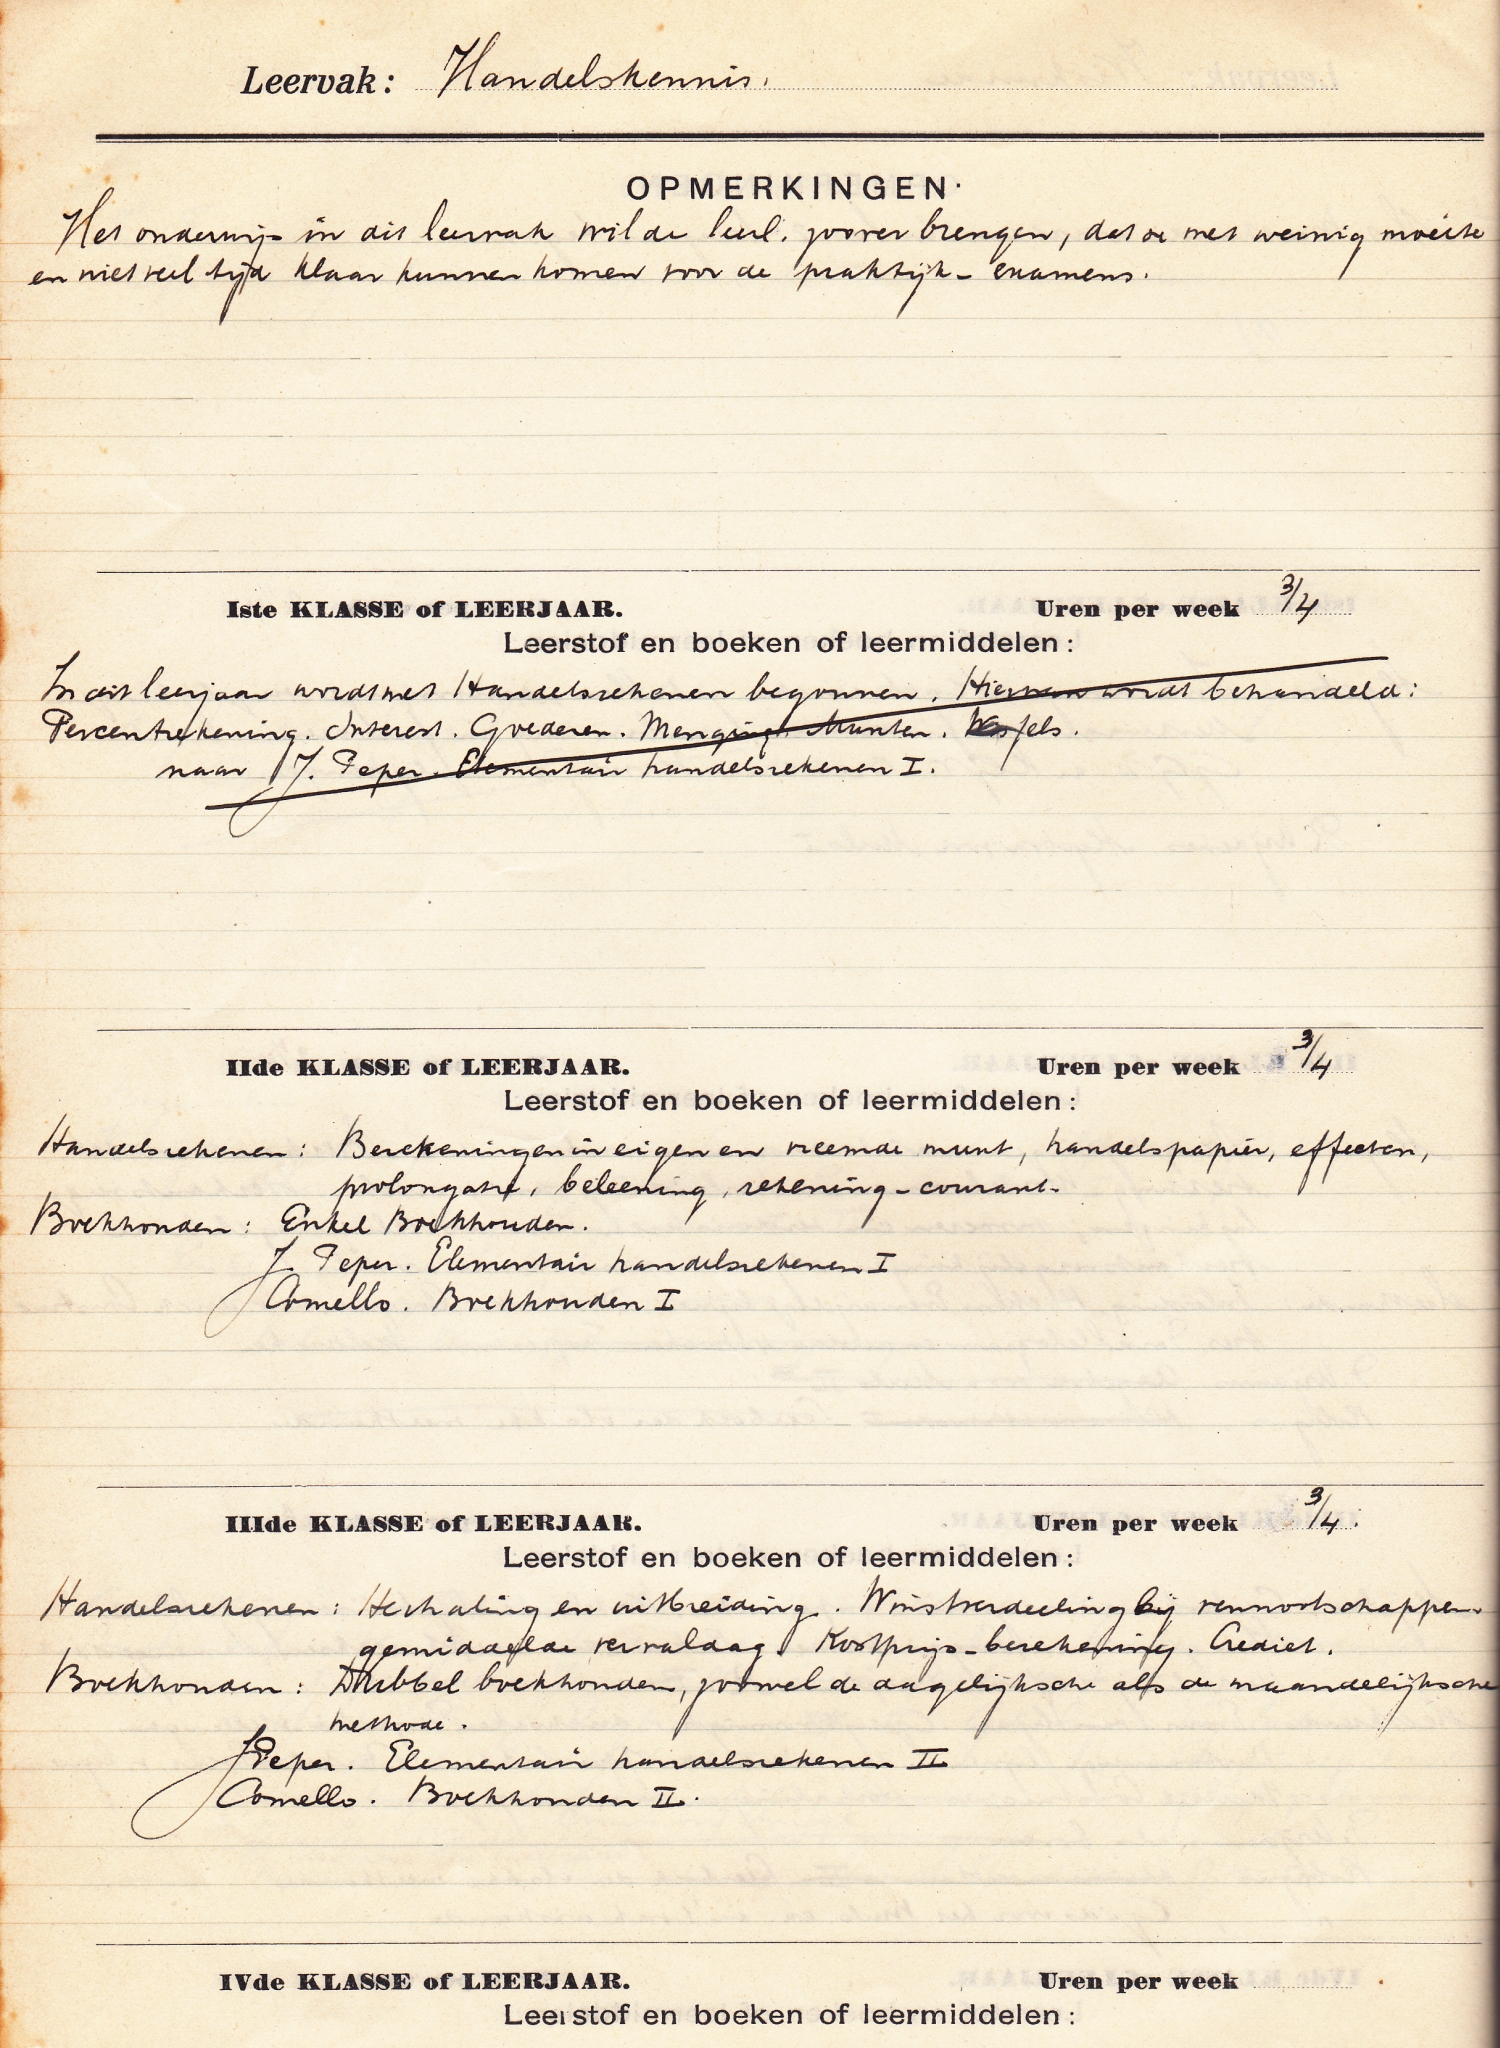 Leervak: Handelskennis.
OPMERKINGEN.
Het onderwijs in dit leervak wil de leerl. zoover brengen, dat ze met weinig moeite
en niet veel tijd klaar kunnen komen voor de praktijk-examens.
Iste KLASSE of LEERJAAR. Uren per week 3/4
Leerstof en boeken of leermiddelen:
In dit leerjaar wordt met Handelsrekenen begonnen. Hiervan wordt behandeld:
Percentrekening. Interest. Goederen. Menging. Munten. Wissels.
naar J. Peper. Elementair handelsrekenen I.
IIde KLASSE of LEERJAAR. Uren per week 3/4
Leerstof en boeken of leermiddelen:
Handelsrekenen: Berekeningen in eigen en vreemde munt, handelspapier, effecten,
prolongatie, beleening, rekening-courant.
Boekhouden: Enkel Boekhouden.
J. Peper. Elementair handelsrekenen I
Comello. Boekhouden I
IIIde KLASSE of LEERJAAR. Uren per week 3/4.
Leerstof en boeken of leermiddelen:
Handelsrekenen: Herhaling en uitbreiding. Winstverdeeling bij vennootschappen.
gemiddelde vervaldag. Kostprijs-berekening. Crediet.
Boekhouden: Dubbel boekhouden, zoowel de dagelijksche als de maandelijksche
methode.
J Peper. Elementair handelsrekenen II
Comello. Boekhouden II.
IVde KLASSE of LEERJAAR. Uren per week
Leerstof en boeken of leermiddelen: